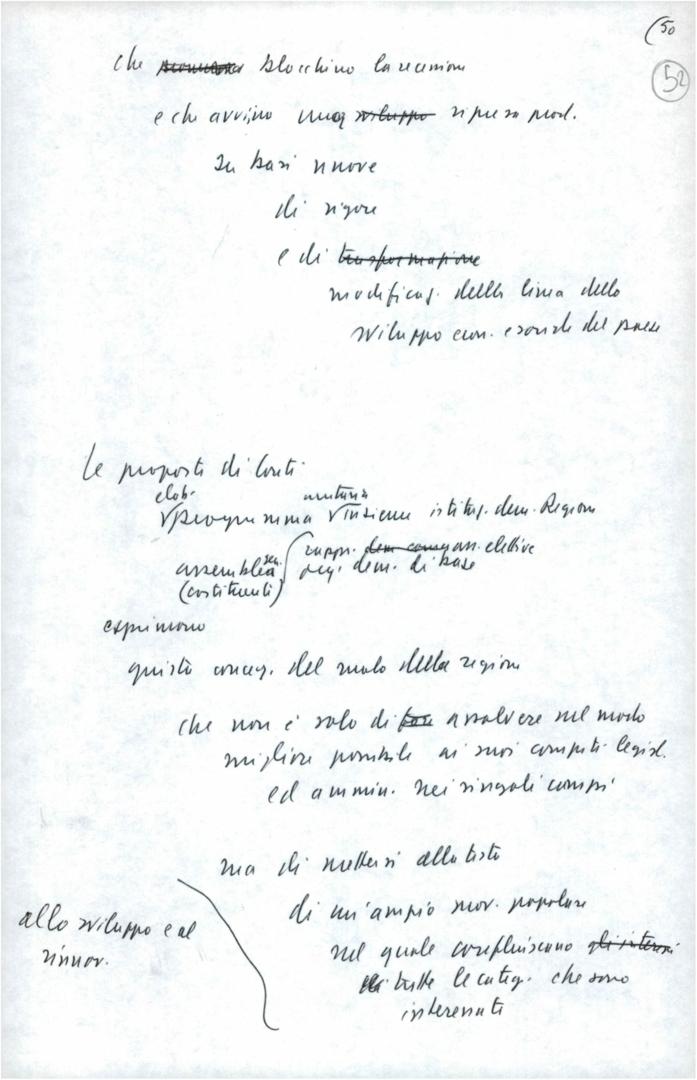 50
52
che blocchino la recessione
e che avviino una sviluppo ripresa prod.
su basi nuove
di rigore
e di trasformazione
modificaz. della linea dello
sviluppo econ. e sociale del paese
Le proposte di Conti
elab.
programma insieme istituz. dem. Regione
assemblea rappr. dem. ass. elettive
(costituenti) org. dem. di base
esprimono
questa concez. del ruolo della regione
che non è solo di assolvere nel modo
migliore possibile ai suoi compiti legisl.
ed ammin. nei singoli campi
ma di mettersi alla testa
di un'ampio mov. popolare
nel quale confluiscano gli interessi
di tutte le categ. che sono
interessati
allo sviluppo e al
rinnov.